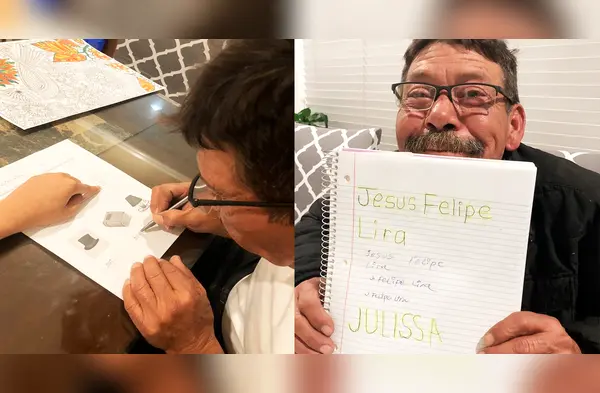 Jesus Felipe
Lira
Jesus Felipe
Lira
Felipe Lira
Felipe Lira
JULISSA